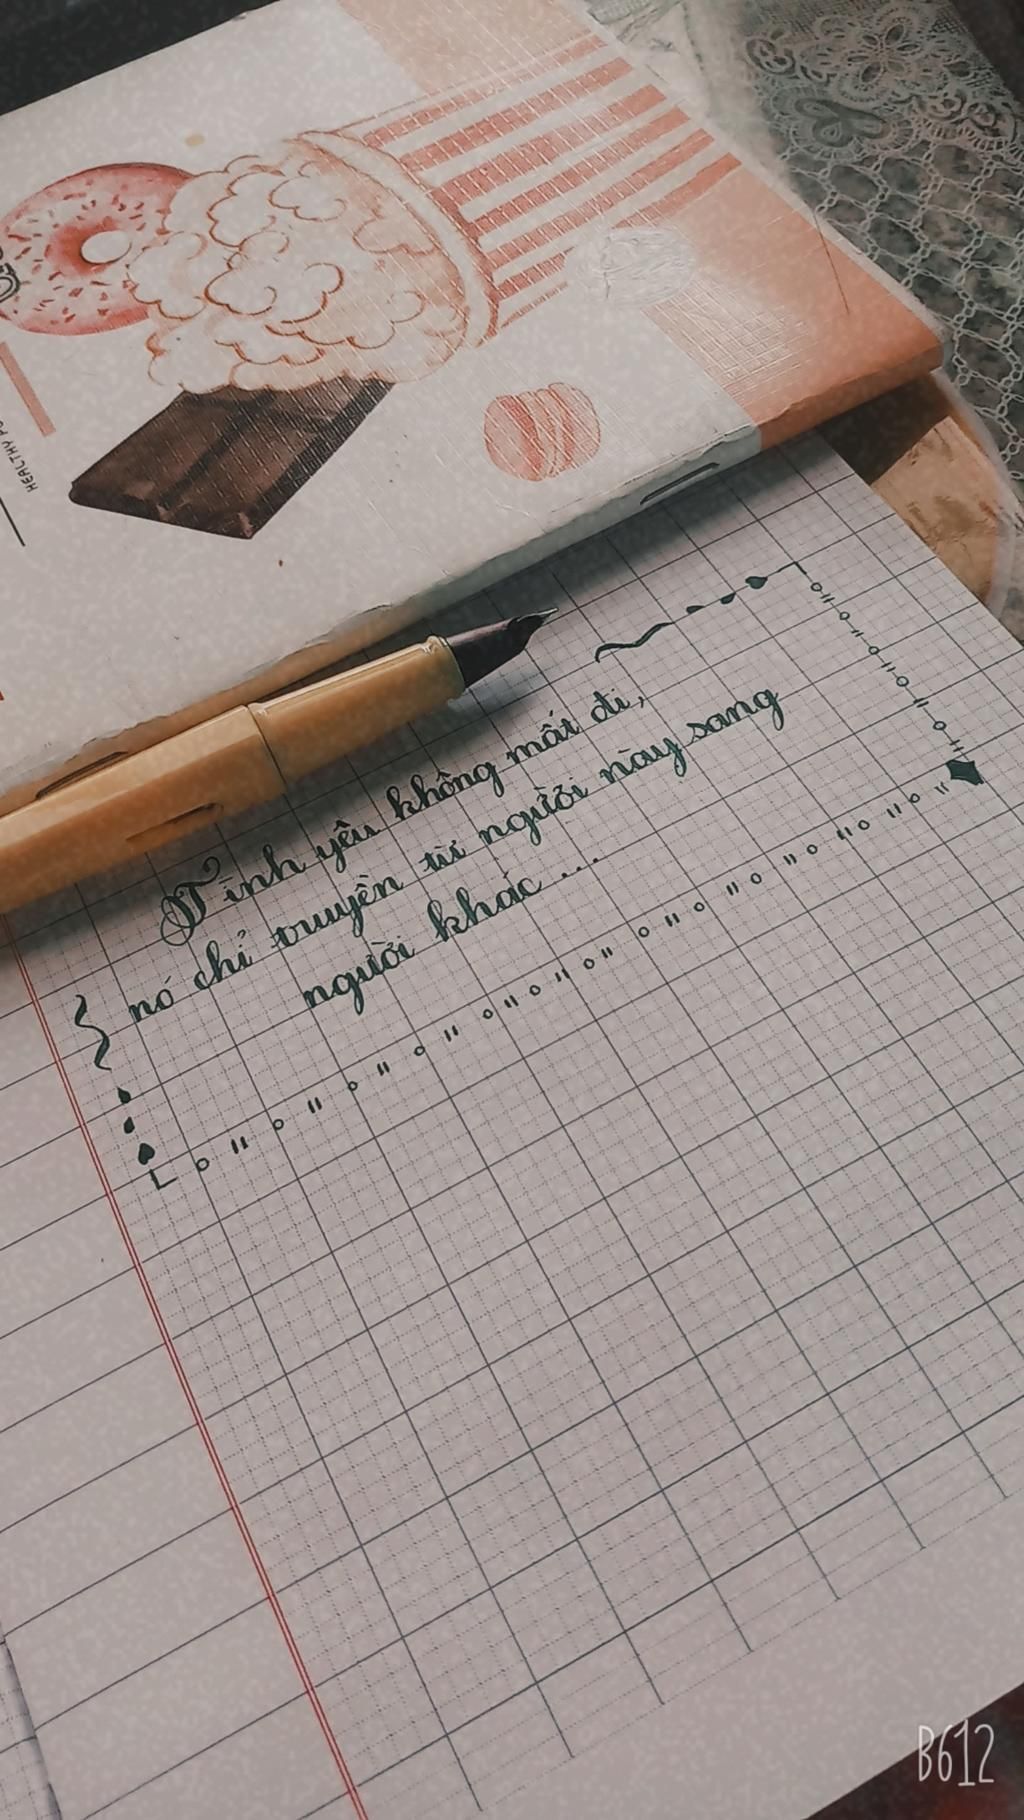 HEALTHY
Tình yêu không mất đi,
nó chỉ truyền từ người này sang
người khác...
B612